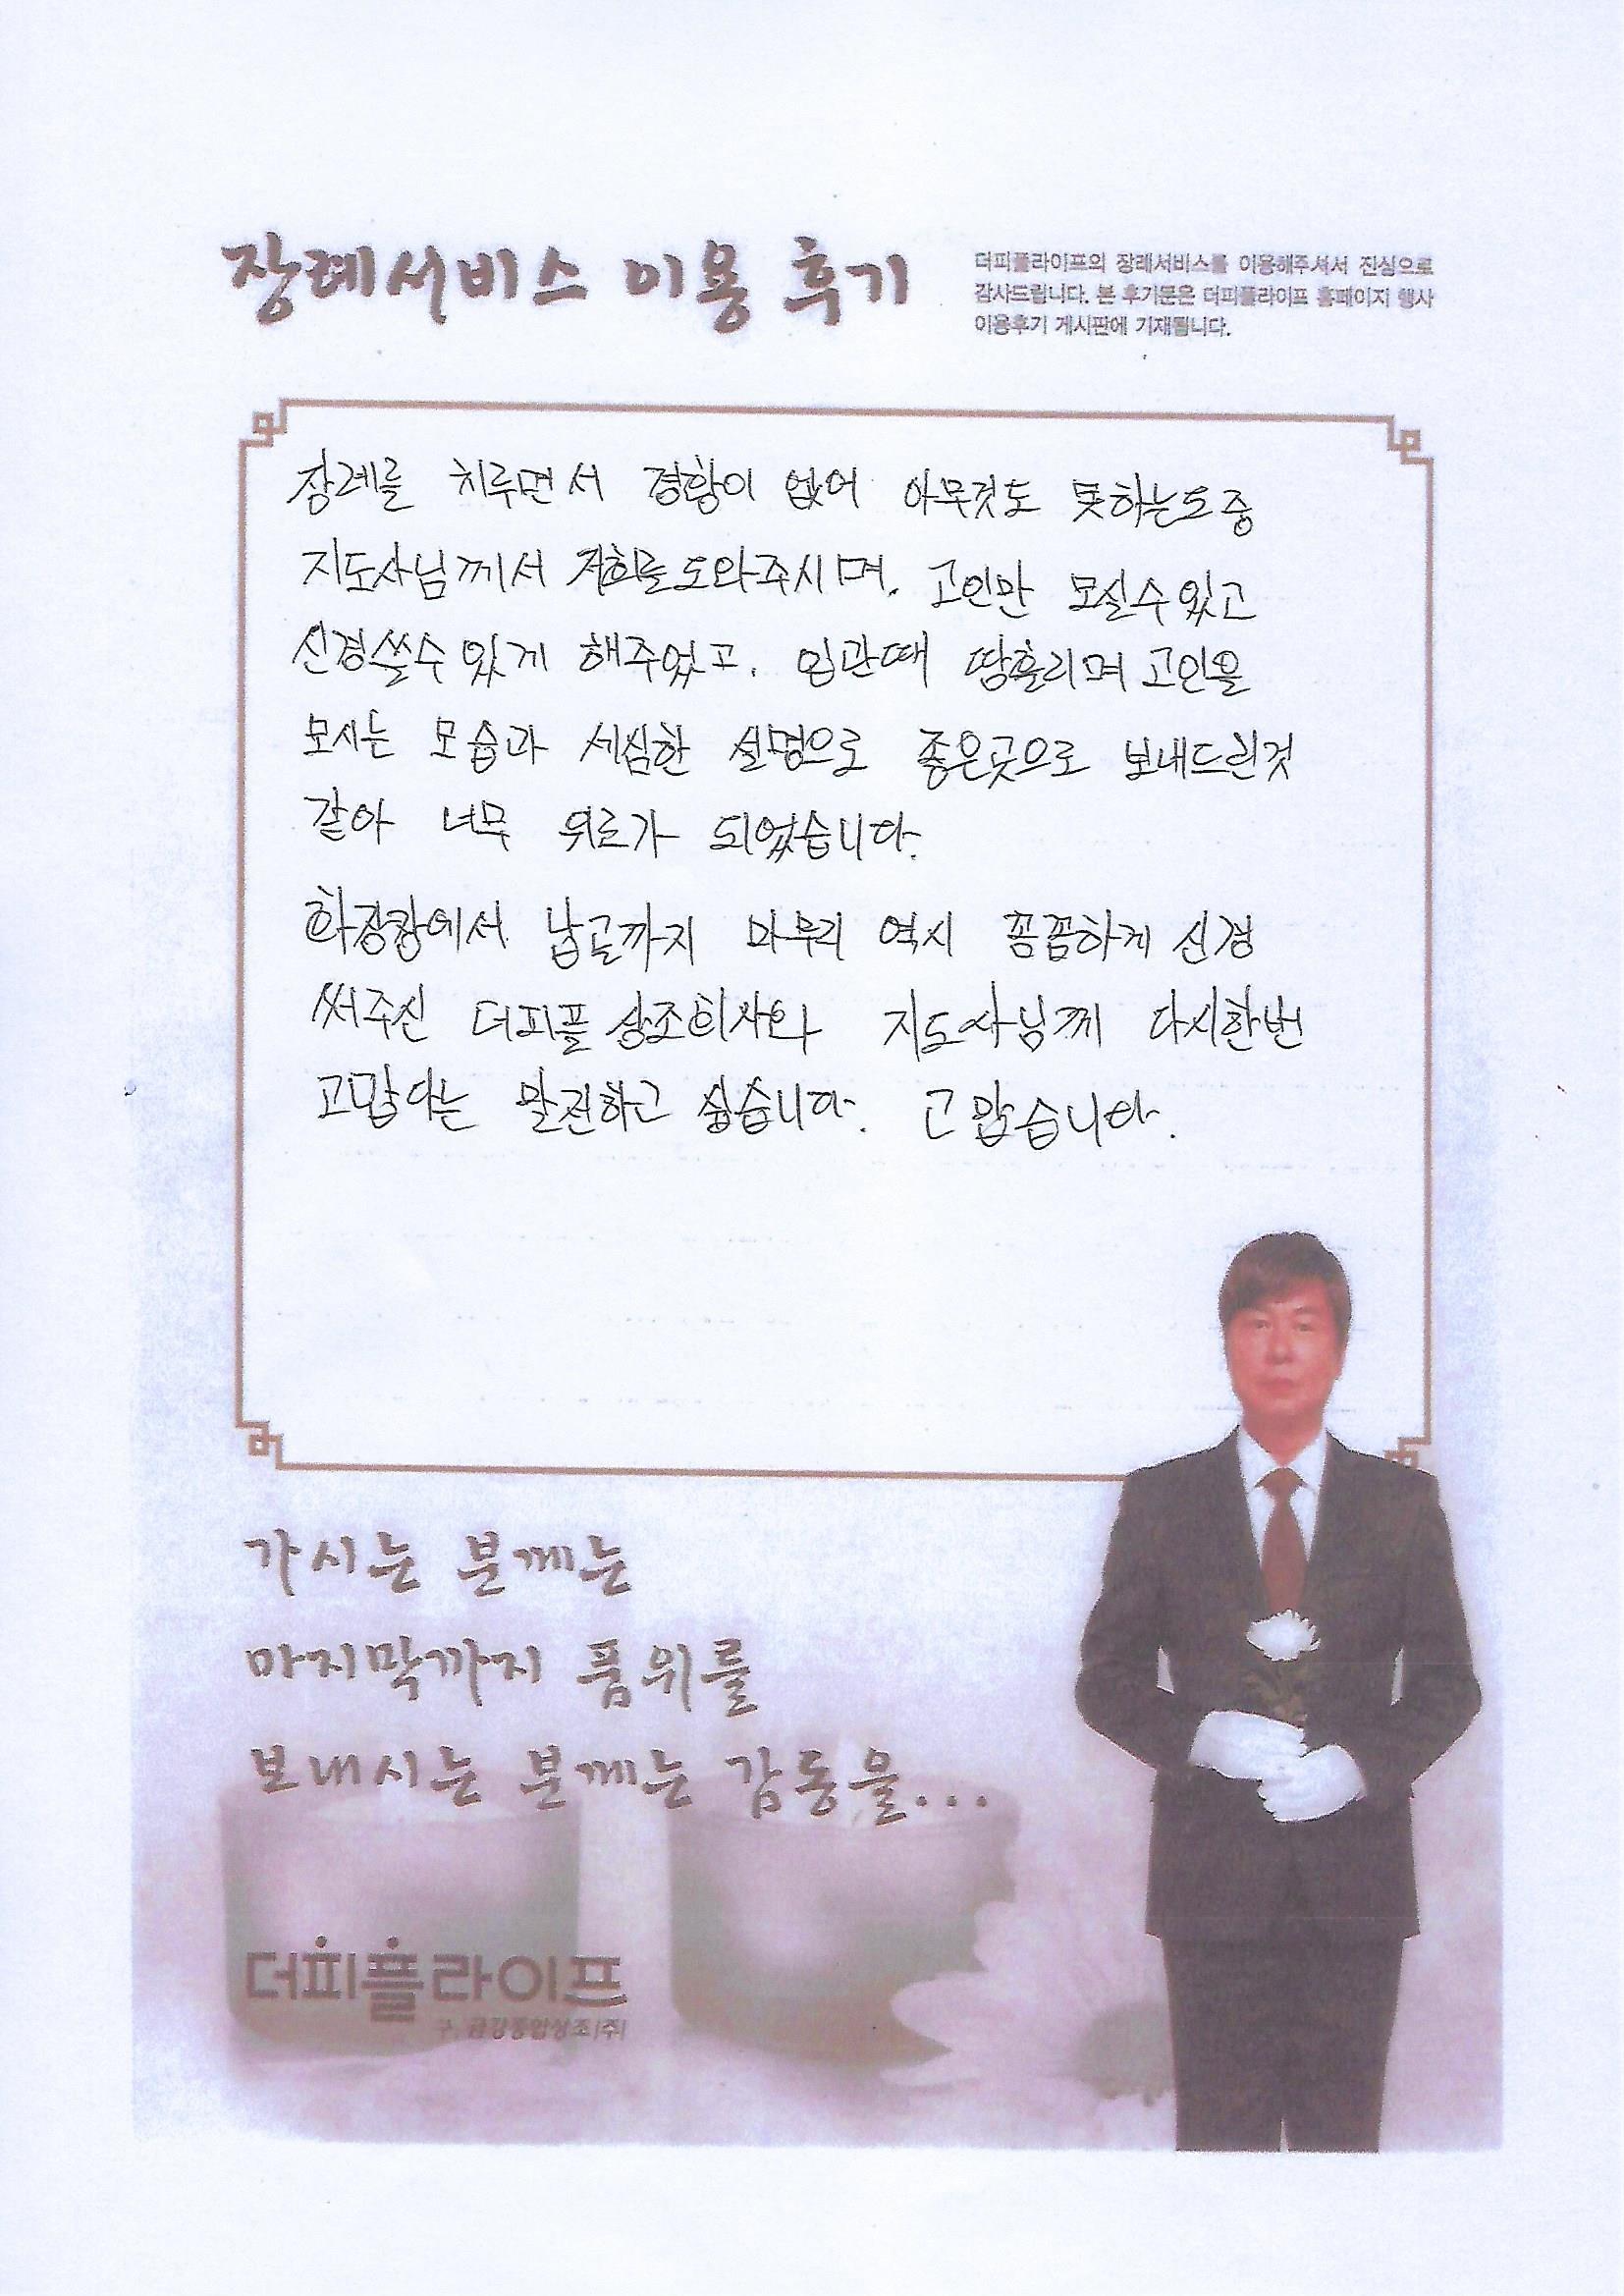 장례서비스 이용 후기
더피플라이프의 장례서비스를 이용해주셔서 진심으로
감사드립니다. 본 후기문은 더피플라이프 홈페이지 행사
이용후기 게시판에 기재됩니다.
장례를 치루면서 경황이 없어 아무것도 못하는도중
지도사님께서 저희를 도와주시며. 고인만 모실수있고
신경쓸수 있게 해주었고. 입관때 땀흘리며 고인을
모시는 모습과 세심한 설명으로 좋은곳으로 보내드린것
같아 너무 위로가 되었습니다.
화장장에서 납골까지 마무리 역시 꼼꼼하게 신경
써주신 더피플 상조회사와 지도사님께 다시한번
고맙다는 말전하고 싶습니다. 고맙습니다.
가시는 분께는
마지막까지 품위를
보내시는 분께는 감동을...
더피플라이프
구. 금강종합상조(주)